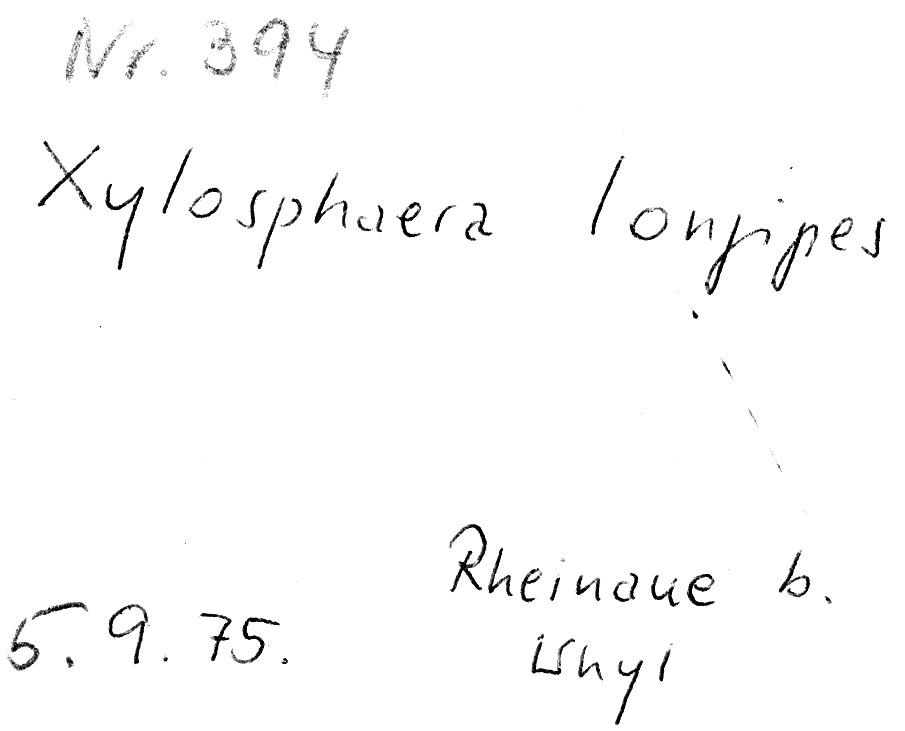 Nr. 394
Xylosphaera longipes
Rheinaue b.
Whyl
5.9.75.